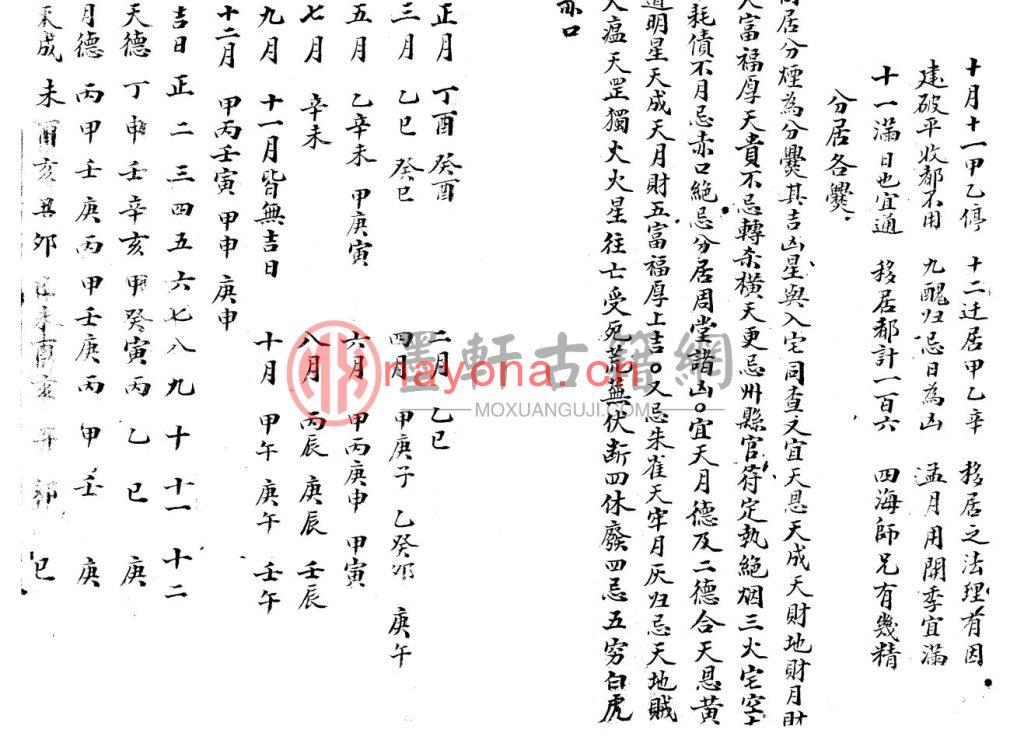 十月十一甲乙停 十二迁居甲乙辛 移居之法理有因
建破平收都不用 九醜归忌日為凶 孟月用開季宜滿
十一滿日也宜通 移居都計一百六 四海師兄有幾精
分居各爨
居分煙為分爨其吉凶星與入宅同查又宜天恩天成天財地財月財
富福厚天貴不忌轉杀橫天更忌州縣官符定執絶烟三火宅空
耗債不月忌赤口絶忌分居周堂諸凶宜天月德及二德合天恩黄
道明星天成天月財五富福厚上吉又忌朱雀天牢月灰归忌天地賊
瘟天罡獨火火星往亡受死荒蕪伏断四休廢四忌五穷白虎
赤口
正月 丁酉 癸酉 二月 乙巳
三月 乙巳 癸巳 四月 甲庚子 乙癸卯 庚午
五月 乙辛未 甲庚寅 六月 甲丙庚申 甲寅
七月 辛未 八月 丙辰 庚辰 壬辰
九月 十一月皆無吉日 十月 甲午 庚午 壬午
十二月 甲丙壬寅 甲申 庚申
吉日 正 二 三 四 五 六 七 八 九 十 十一 十二
天德 丁 申 壬 辛 亥 甲 癸 寅 丙 乙 巳 庚
月德 丙 甲 壬 庚 丙 甲 壬 庚 丙 甲 壬 庚
天成 未 酉 亥 丑 卯 巳 未 酉 亥 丑 卯 巳
墨軒古籍網
nayona.cn
MOXUANGUJI.COM